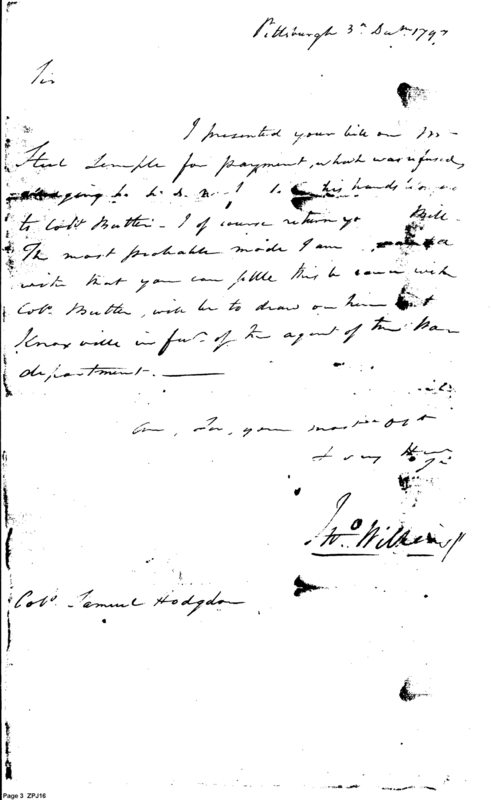 Pittsburgh 3d Decr 1797
Sir
I presented your bill on Mr
Steel Semple for payment, which was refused,
his hands
to Colo Butler - I of course return yo Bill -
The most probable mode I am
with that you can settle this with
Colo Butler, will be to draw on him at
Knoxville in favr of the agent of the War
department. ———
am, Sir, your most obt
& very Hum
Jno Wilkins Jr
Colo Samuel Hodgdon
Page 3 ZPJ16